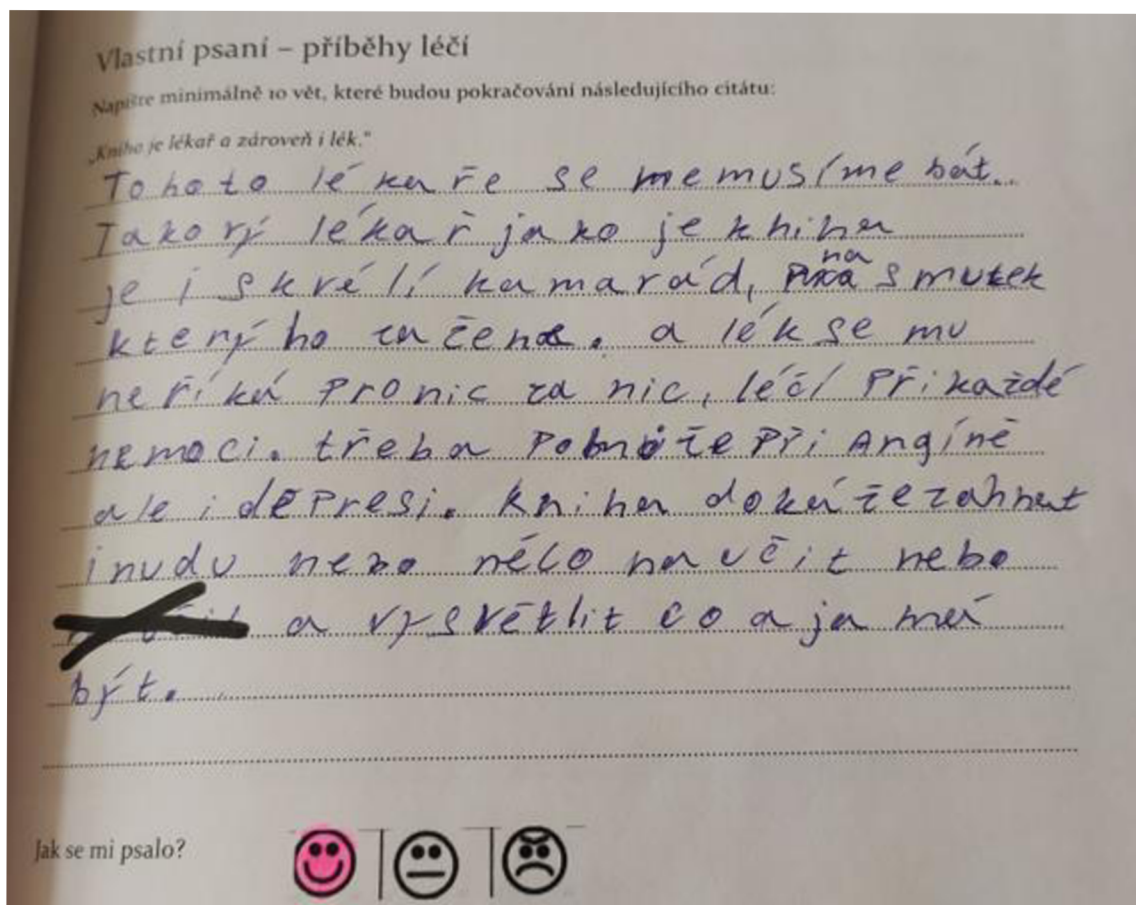 Vlastní psaní – příběhy léčí
Napište minimálně 10 vět, které budou pokračování následujícího citátu:
„Kniha je lékař a zároveň i lék."
Tohoto lékaře se nemusíme bát.
Takový lékař jako je kniha
je i skvélí kamarád, na smutek
který ho zažene. a lék se mu
neříká pro nic za nic, léčí při každé
nemoci. třeba pomóže při Angíně
ale i depresi. kniha dokáže zahnat
i nudu nebo něco naučit nebo
a vysvětlit co a ja má
být.
Jak se mi psalo?